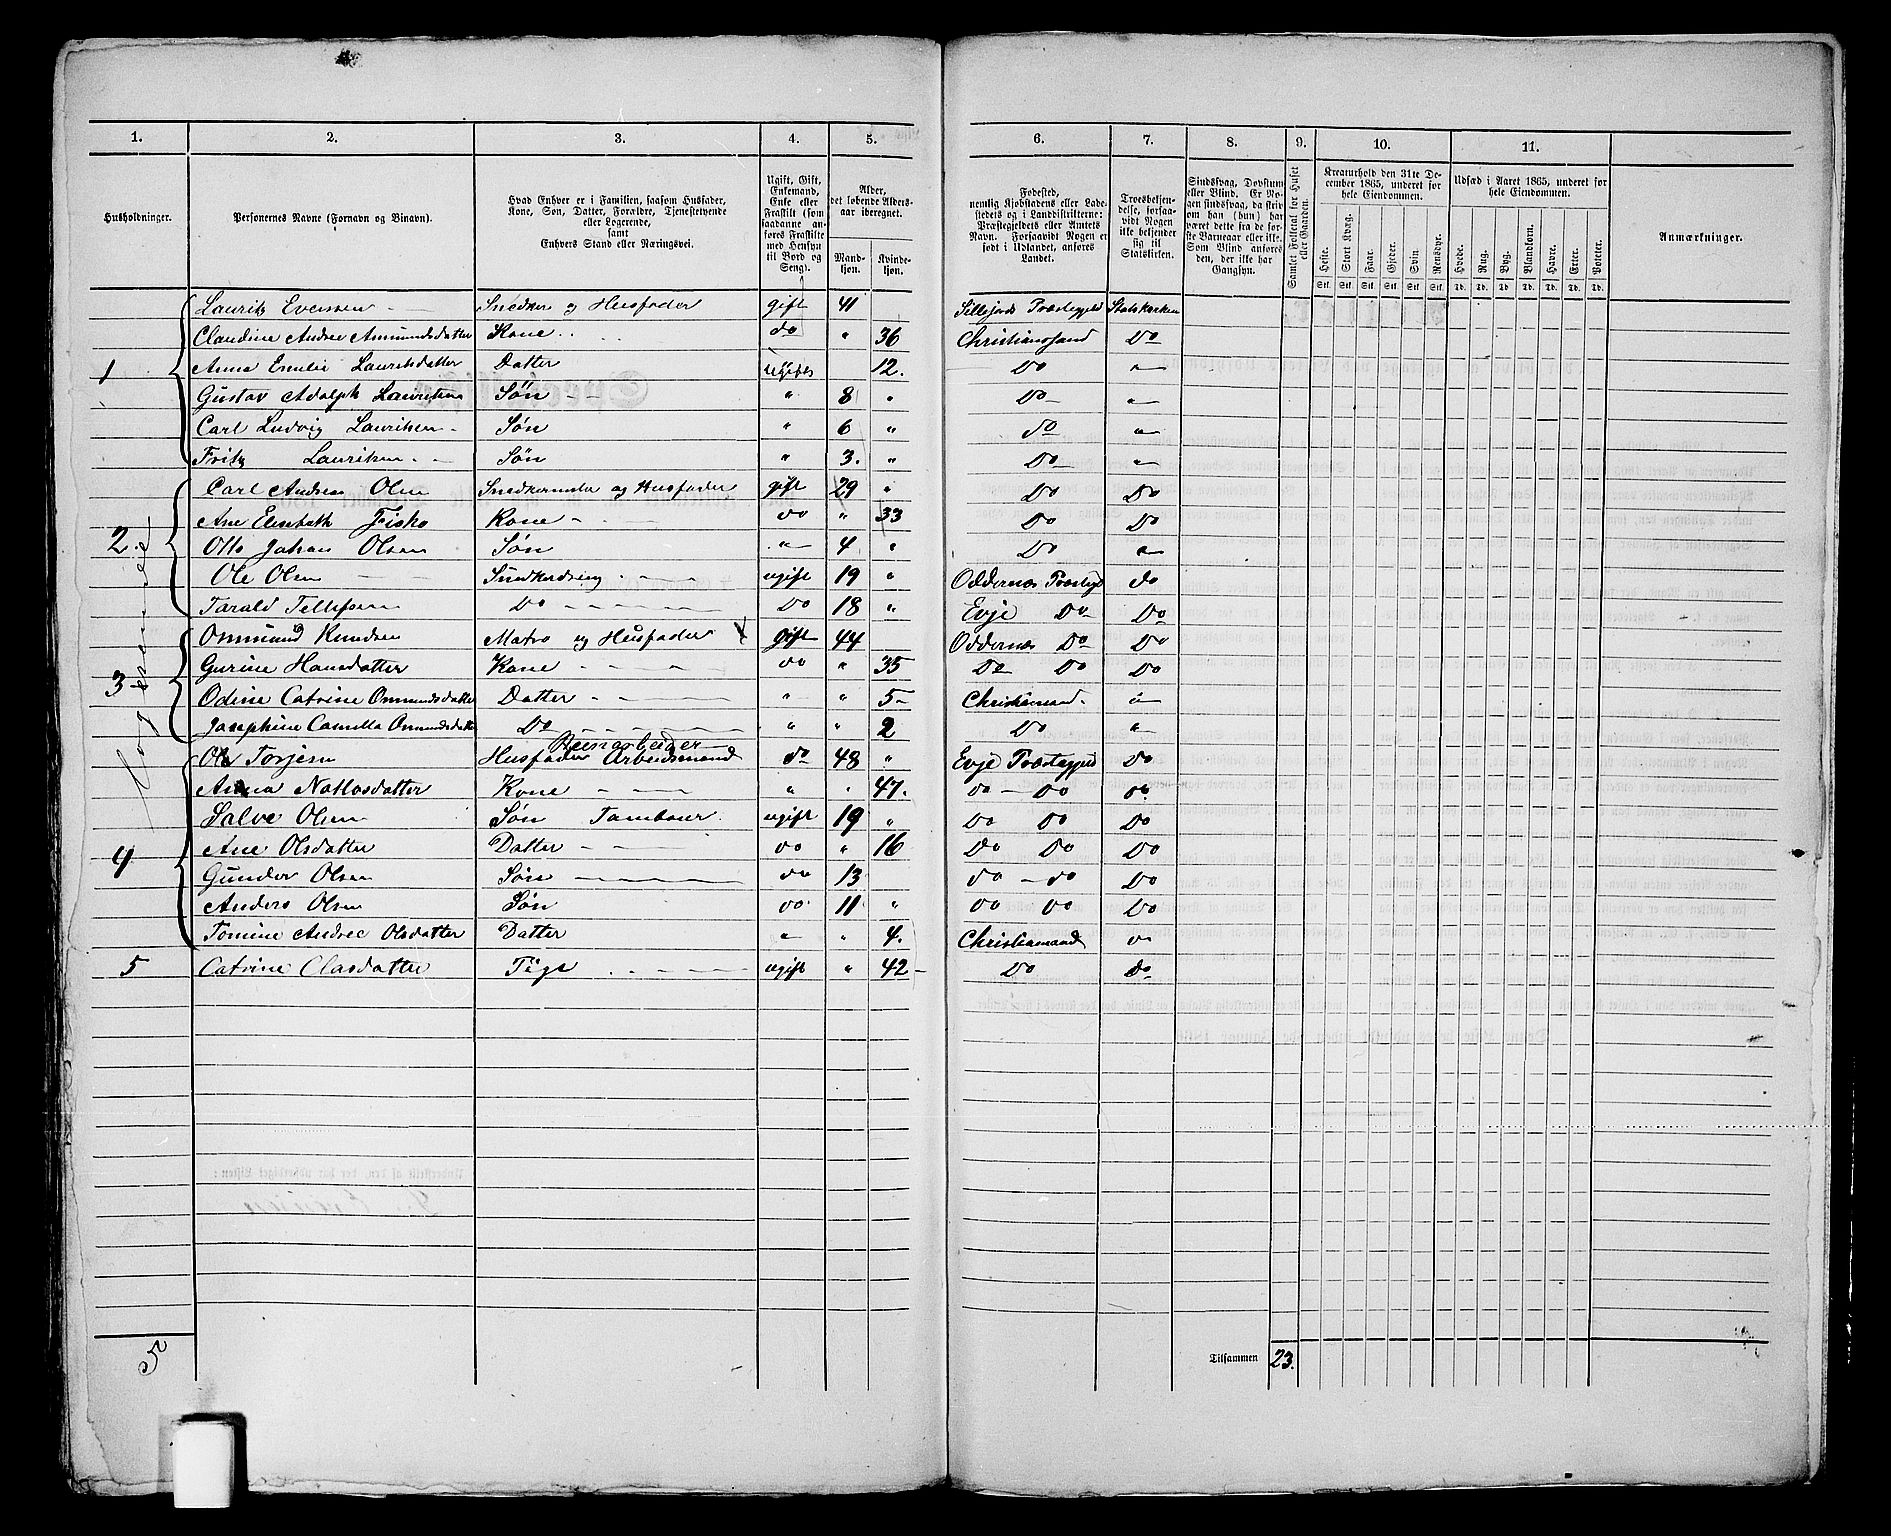 1. 2. 3. 4. 5. 6. 7. 8. 9. 10. 11.
Husholdninger.
Personernes Navne (Fornavn og Binavn).
Hvad Enhver er i Familien, saasom Husfader, Kone, Søn, Datter, Forældre, Tjenestetyende eller Logerende, samt Enhvers Stand eller Næringsvei.
Ugift, Gift, Enkemand, Enke eller Fraskilt (som saadanne anføres Fraskilte med Hensyn til Bord og Seng).
Alder, det løbende Aldersaar iberegnet.
Mandkjøn. Kvindekjøn.
Fødested, nemlig Kjøbstadens eller Ladestedets og i Landdistrikterne: Præstegjeldets eller Amtets Navn. Forsaavidt Nogen er født i Udlandet, anføres Landet.
Troesbekjendelse, forsaavidt Nogen ikke bekjender sig til Statskirken.
Sindssvag, Døvstum eller Blind. Er Nogen sindssvag, da skrives om han (hun) har været dette fra de første Barneaar eller ikke. Som Blind anføres den, der ikke har Gangsyn.
Samlet Folketal for Huset eller Gaarden.
Kreaturhold den 31te December 1865, underet for hele Eiendommen.
Heste. Stort Kvæg. Faar. Gjeder. Svin. Rensdyr.
Stk. Stk. Stk. Stk. Stk. Stk.
Udsæd i Aaret 1865, underet for hele Eiendommen.
Hvede. Rug. Byg. Blandkorn. Havre. Erter. Poteter.
Td. Td. Td. Td. Td. Td. Td.
Anmærkninger.
1 Lauritz Evensen Snedker og Husfader gift 41 Sillejords Præstegjeld Statskirken
Claudine Andree Amundsdatter Kone do " 36 Christianssand Do
Anna Emilie Lauritsdatter Datter ugifte 12. Do "
Gustav Adolph Lauritsen Søn " 8 " Do "
Carl Ludvig Lauritsen Søn " 6 " do "
Fritz Lauritsen Søn " 3. " Do "
2 Carl Andreas Olsen Snedkermester og Husfader gift 29 " Do Do
Ane Elisabeth Fisko Kone do " 33 Do Do
Otto Johan Olsen Søn " 4 " Do "
Ole Olsen Snedkerdreng ugift 19 " Oddernæs Præstegj do
Tarald Tellefsen Do Do 18 " Evje Do Do
3 Ommund Knudsen Matro og Husfader gift 44 Oddernæs Do Do
Gurine Hansdatter Kone do " 35 Do Do Do
Odine Catrine Ommundsdatter Datter " " 5 Christiansand "
Josephine Camilla Ommundsdatter Do " " 2 Do "
Reenarbeider
4 Ole Torjesen Husfader Arbeidsmand do 48 " Evje Præstegjeld Do
Anna Nottosdatter Kone " " 47. Do Do do
Salve Olsen Søn Tambour ugift 19 " Do Do Do
Ane Olsdatter Datter Do " 16 Do Do Do
Gunder Olsen Søn do 13 do do Do
Anders Olsen Søn do 11 " do do Do
Tomine Andrec Olsdatter Datter " " 4. Christiansand "
5 Catrine Olasdatter Pige ugift " 42 Do do
logerende
5
Tilsammen 23.